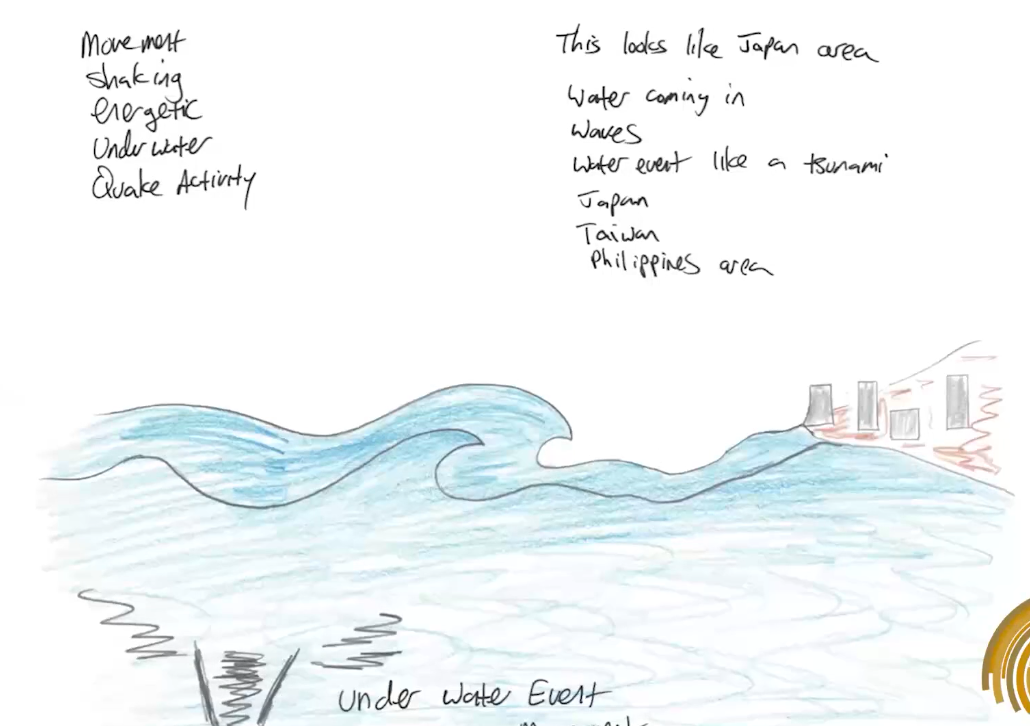 Movement
Shaking
energetic
Underwater
Quake Activity
This looks like Japan area
Water coming in
Waves
Water event like a tsunami
Japan
Taiwan
Philippines area
Under Water Event